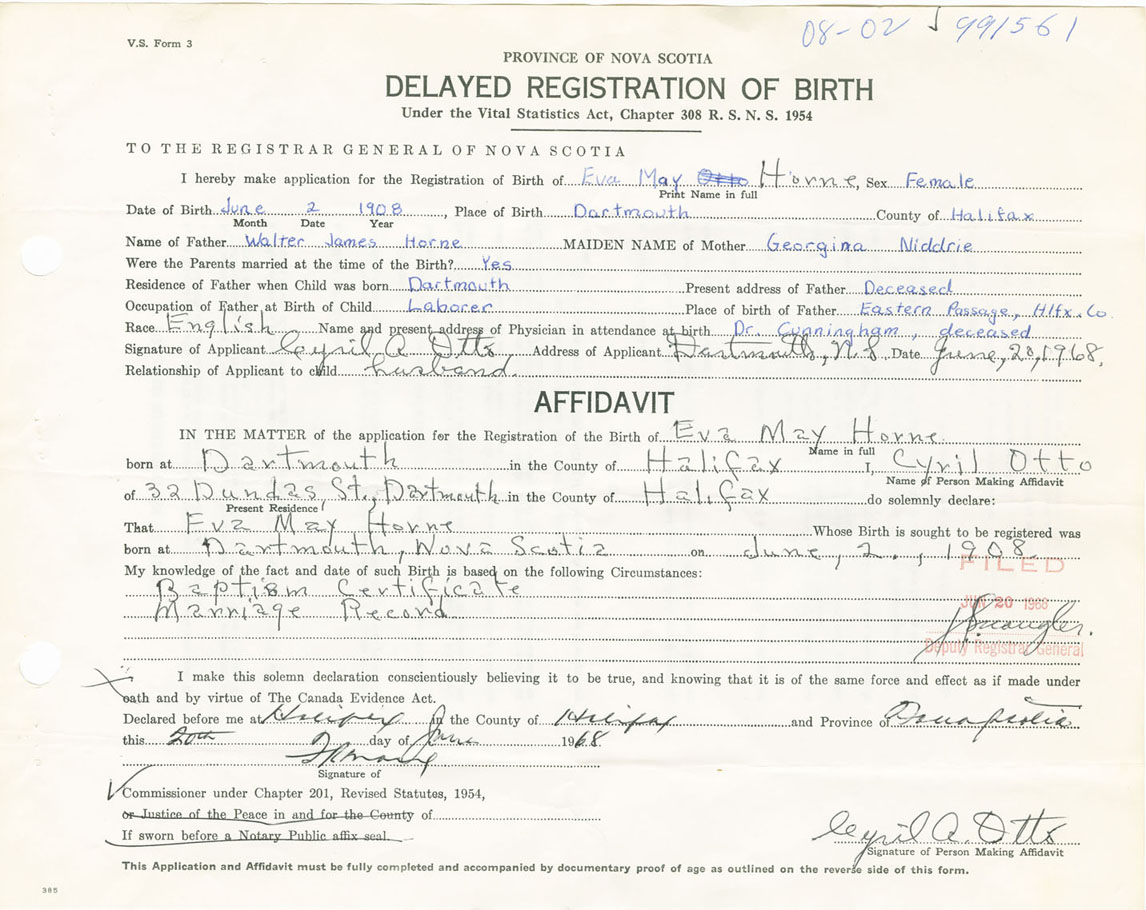 08-02 991561
V.S. Form 3
PROVINCE OF NOVA SCOTIA
DELAYED REGISTRATION OF BIRTH
Under the Vital Statistics Act, Chapter 308 R. S. N. S. 1954
TO THE REGISTRAR GENERAL OF NOVA SCOTIA
I hereby make application for the Registration of Birth of Eva May Otto Horne, Sex Female
Print Name in full
Date of Birth June 2 1908, Place of Birth Dartmouth County of Halifax
Month Date Year
Name of Father Walter James Horne MAIDEN NAME of Mother Georgina Niddrie
Were the Parents married at the time of the Birth? Yes
Residence of Father when Child was born Dartmouth Present address of Father Deceased
Occupation of Father at Birth of Child Laborer Place of birth of Father Eastern Passage, Hlfx. Co.
Race English Name and present address of Physician in attendance at birth Dr. Cunningham, deceased
Signature of Applicant Cyril A Otto Address of Applicant Dartmouth, N.S. Date June, 20, 1968.
Relationship of Applicant to child husband.
AFFIDAVIT
IN THE MATTER of the application for the Registration of the Birth of Eva May Horne.
Name in full
born at Dartmouth in the County of Halifax I, Cyril Otto
Name of Person Making Affidavit
of 32 Dundas, St., Dartmouth in the County of Halifax do solemnly declare:
Present Residence
That Eva May Horne Whose Birth is sought to be registered was
born at Dartmouth, Nova Scotia on June, 2., 1908.
My knowledge of the fact and date of such Birth is based on the following Circumstances:
Baptism Certificate
Marriage Record
FILED
JUN 20 1968
Deputy Registrar General
I make this solemn declaration conscientiously believing it to be true, and knowing that it is of the same force and effect as if made under
oath and by virtue of The Canada Evidence Act.
Declared before me at Halifax in the County of Halifax and Province of Nova Scotia
this 20th day of June 1968
Signature of
Commissioner under Chapter 201, Revised Statutes, 1954,
or Justice of the Peace in and for the County of
If sworn before a Notary Public affix seal.
Cyril A. Otto
Signature of Person Making Affidavit
This Application and Affidavit must be fully completed and accompanied by documentary proof of age as outlined on the reverse side of this form.
385